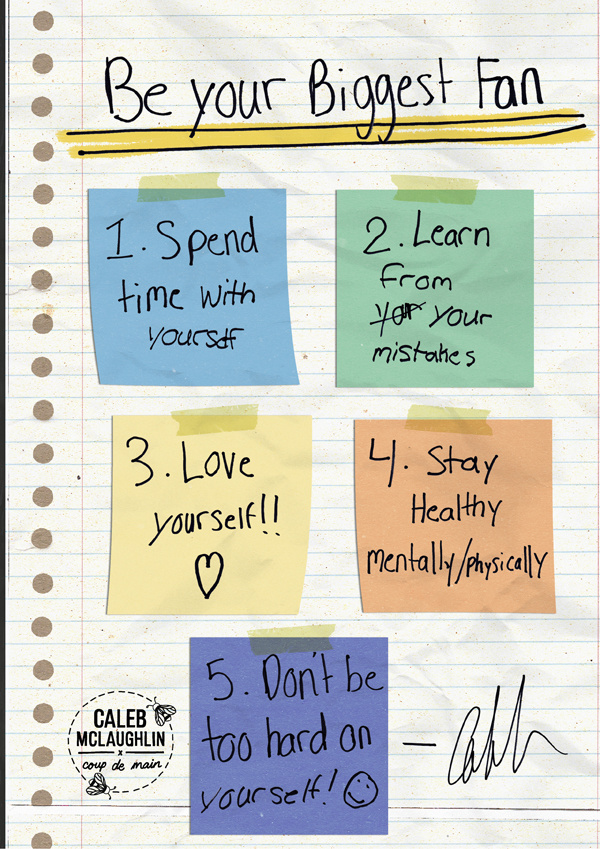 Be your Biggest Fan
1. Spend
time with
yourself
2. Learn
From
your your
mistakes
3. Love
yourself!!
4. Stay
Healthy
mentally/physically
5. Don't be
too hard on
yourself!
CALEB
MCLAUGHLIN
x
coup de main